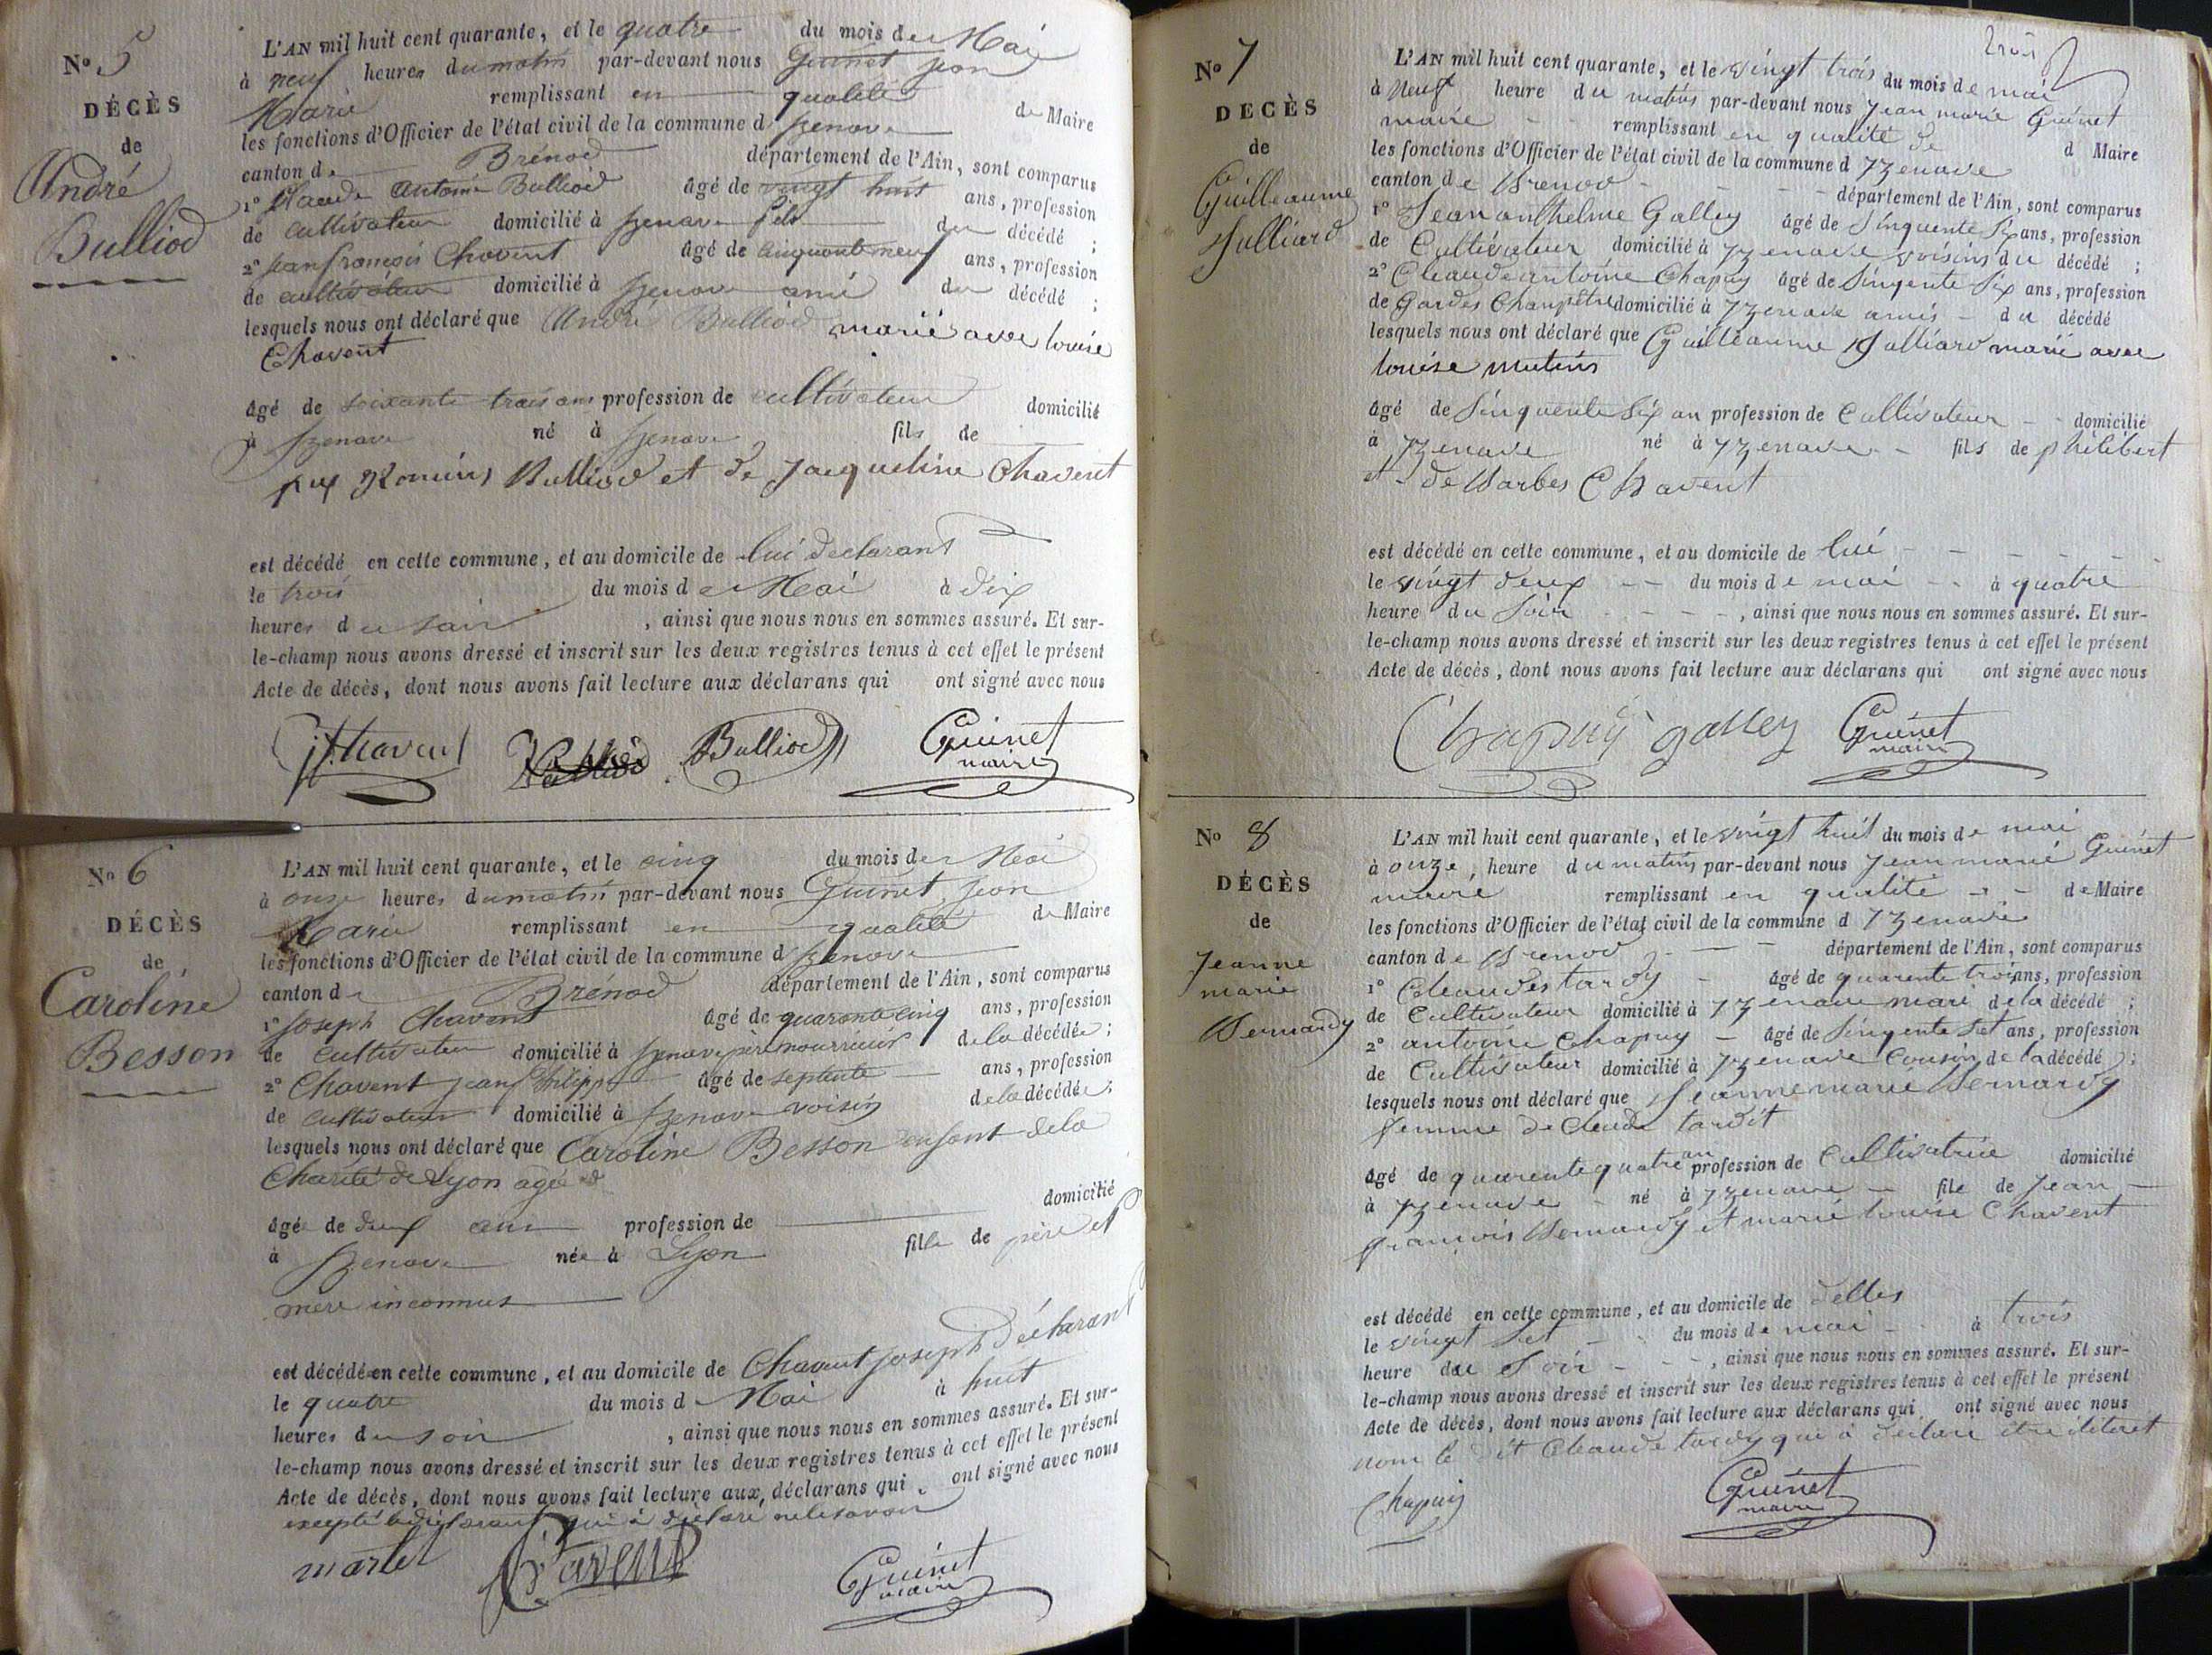 No 5
DÉCÈS
de
André
Bulliod
L'AN mil huit cent quarante, et le quatre du mois de Mai
à neuf heures du matin par-devant nous Guinet jean
Marie remplissant en qualité de Maire
les fonctions d'Officier de l'état civil de la commune d Izenave
canton de Brénod département de l'Ain, sont comparus
1° Claude Antoine Bulliod âgé de vingt huit ans, profession
de cultivateur domicilié à Izenave fils du décédé ;
2° jean françois Chavent âgé de cinquante neuf ans, profession
de cultivateur domicilié à Izenave ami du décédé ;
lesquels nous ont déclaré que André Bulliod marié avec louise
Chavent
âgé de soixante trois ans profession de cultivateur domicilié
à Izenave né à Izenave fils de
Bulliod et de Jacqueline Chavent
est décédé en cette commune, et au domicile de lui declarant
le trois du mois de Mai à dix
heures du soir , ainsi que nous nous en sommes assuré. Et sur-
le-champ nous avons dressé et inscrit sur les deux registres tenus à cet effet le présent
Acte de décès, dont nous avons fait lecture aux déclarans qui ont signé avec nous
jf Chavent Bulliod Guinet
maire
No 6
DÉCÈS
de
Caroline
Besson
L'AN mil huit cent quarante, et le cinq du mois de Mai
à onze heures du matin par-devant nous Guinet jean
Marie remplissant en qualité de Maire
les fonctions d'Officier de l'état civil de la commune d Izenave
canton de Brénod département de l'Ain, sont comparus
1° joseph Chavent âgé de quarante cinq ans, profession
de cultivateur domicilié à Izenave père nourricier de la décédée ;
2° Chavent jean Philippe âgé de septente ans, profession
de cultivateur domicilié à Izenave voisin de la décédée ;
lesquels nous ont déclaré que Caroline Besson enfant de la
Charité de Lyon agée d
âgée de deux ans profession de domicilié
à Izenave née à Lyon fille de père et
mère inconnus
est décédée en cette commune, et au domicile de Chavent joseph Déclarant
le quatre du mois de Mai à huit
heures du soir , ainsi que nous nous en sommes assuré. Et sur-
le-champ nous avons dressé et inscrit sur les deux registres tenus à cet effet le présent
Acte de décès, dont nous avons fait lecture aux déclarans qui ont signé avec nous
excepté le déclarant qui a déclaré ne le savoir
Chavent Guinet
maire
trois
No 7
DECÈS
de
Guilleaume
Julliard
L'AN mil huit cent quarante, et le vingt trois du mois de mai
à Neuf heure du matins par-devant nous Jean marie Guinet
maire remplissant en qualité de d Maire
les fonctions d'Officier de l'état civil de la commune d yzenave
canton de Brenod département de l'Ain, sont comparus
1° Jean anthelme Galley âgé de Sinquente Six ans, profession
de Cultivateur domicilié à yzenave voisins du décédé ;
2° Cleaude antoine Chapuy âgé de Sinqente Six ans, profession
de Gardes Champêtre domicilié à yzenave amis du décédé
lesquels nous ont déclaré que Guilleaume Julliard marié avec
louise mutins
âgé de Sinquente Six an profession de Cultivateur domicilié
à yzenave né à yzenave fils de philibert
et de Barbes Chavent
est décédé en cette commune, et au domicile de lui
le vingt deux du mois de mai à quatre
heure du Soir , ainsi que nous nous en sommes assuré. Et sur-
le-champ nous avons dressé et inscrit sur les deux registres tenus à cet effet le présent
Acte de décès, dont nous avons fait lecture aux déclarans qui ont signé avec nous
Chapuy galley Guinet
maire
No 8
DÉCÈS
de
Jeanne
marie
Bernardy
L'AN mil huit cent quarante, et le vingt huit du mois de mai
à onze, heure du matins par-devant nous Jean marie Guinet
maire remplissant en qualité de Maire
les fonctions d'Officier de l'état civil de la commune d yzenave
canton de Brenod département de l'Ain, sont comparus
1° Cleaudes tardy âgé de quarente trois ans, profession
de Cultivateur domicilié à yzenave mari de la décédé ;
2° antoine Chapuy âgé de Sinqente Set ans, profession
de Cultivateur domicilié à yzenave Cousin de la décédé ;
lesquels nous ont déclaré que Jeanne marie Bernardy
femme de Claude tardit
âgé de quarente quatre an profession de Cultivatrice domicilié
à yzenave né à yzenave file de Jean
françois Bernardy et marie louise Chavent
est décédé en cette commune, et au domicile de delles
le vingt Set du mois de mai à trois
heure du Soir , ainsi que nous nous en sommes assuré. Et sur-
le-champ nous avons dressé et inscrit sur les deux registres tenus à cet effet le présent
Acte de décès, dont nous avons fait lecture aux déclarans qui ont signé avec nous
non le dit Cleaude tardy qui a déclaré être iliteret
Chapuy Guinet
maire